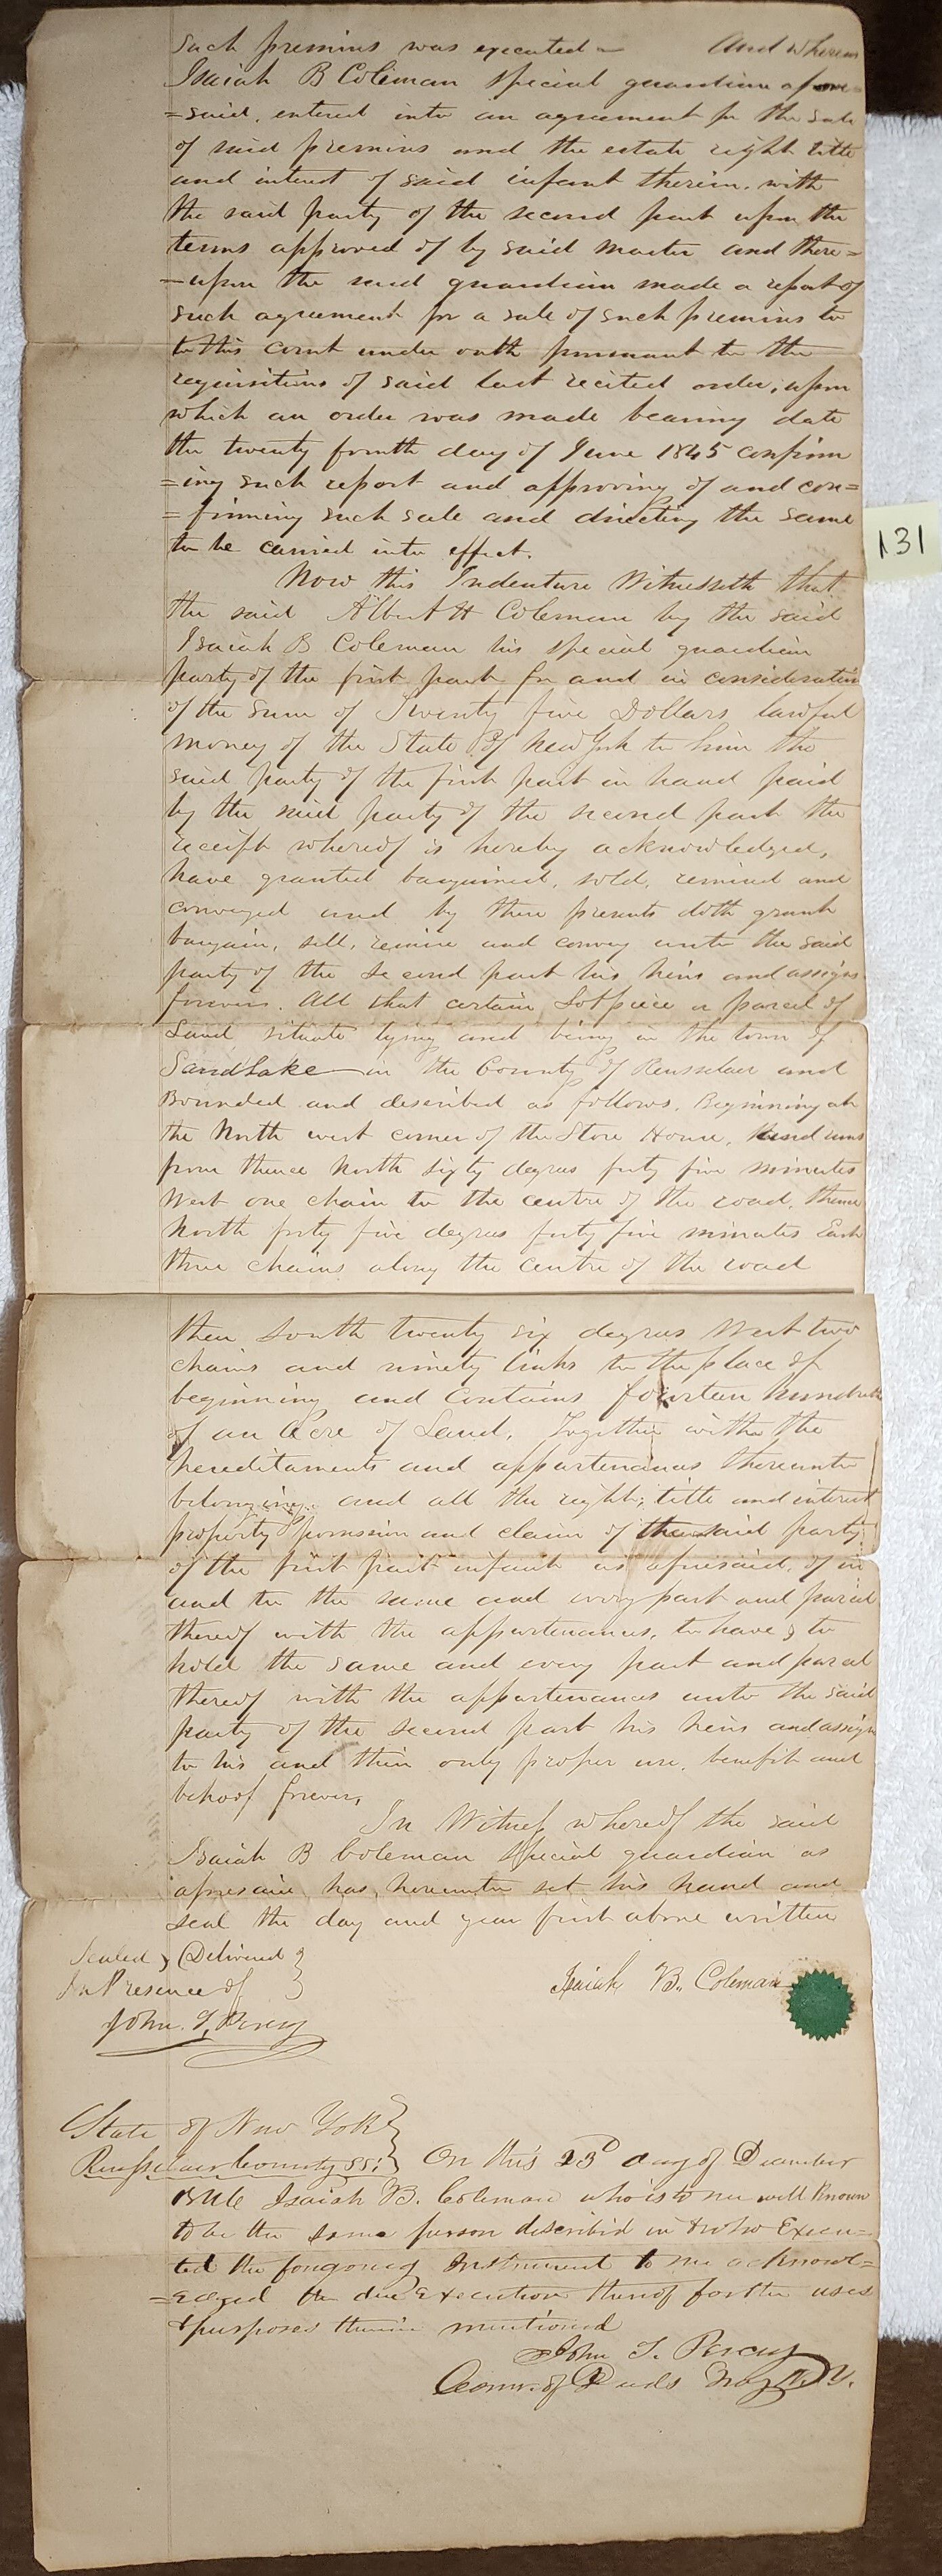 such premises was executed — And whereas
Isaiah B Coleman special guardian afore=
=said, entered into an agreement for the sale
of said premises and the estate right title
and interest of said infant therein, with
the said party of the second part upon the
terms approved of by said master and there=
=upon the said guardian made a report of
such agreement for a sale of such premises to
to this court under oath pursuant to the
requisitions of said last recited order, upon
which an order was made bearing date
the twenty fourth day of June 1845 confirm
=ing such report and approving of and con=
=firming such sale and directing the same
to be carried into effect.
131
Now this Indenture Witnesseth that
the said Albert H Coleman by the said
Isaiah B Coleman his special guardian
party of the first part for and in consideration
of the sum of Twenty five Dollars lawful
money of the State of New York to him the
said party of the first part in hand paid
by the said party of the second part the
receipt whereof is hereby acknowledged,
have granted bargained, sold, remised and
conveyed and by these presents doth grant
bargain, sell, remise and convey unto the said
party of the second part his heirs and assigns
forever. All that certain Lot piece or parcel of
Land situate lying and being in the town of
Sandlake in the County of Rensselaer and
Bounded and described as follows. Beginning at
the North west corner of the Store House, and runs
from thence North sixty degrees forty five minutes
West one chain to the centre of the road, thence
North forty five degrees forty five minutes East
three chains along the centre of the road
then South twenty six degrees West two
chains and ninety links to the place of
beginning and Contains fourteen hundredth
of an Acre of Land. Together with the
hereditaments and appurtenances thereunto
belonging, and all the right, title and interest
property possession and claim of the said party
of the first part infant as aforesaid, of in
and to the same and every part and parcel
thereof with the appurtenances, to have & to
hold the same and every part and parcel
thereof with the appurtenances unto the said
party of the second part his heirs and assigns
to his and their only proper use, benefit and
behoof forever,
In Witness whereof the said
Isaiah B Coleman Special guardian as
aforesaid has hereunto set his hand and
seal the day and year first above written
Sealed & Delivered
In Presence of
John T. Percy
Isaiah B. Coleman
State of New York
Rensselaer County SS: On this 23d day of December
1846 Isaiah B. Coleman who is to me well Known
to be the same person described in & who Execu=
ted the foregoing Instrument to me acknowl=
=edged the due Execution thereof for the uses
& purposes therein mentioned
John T. Percy
Comr. of Deeds Troy N.Y.